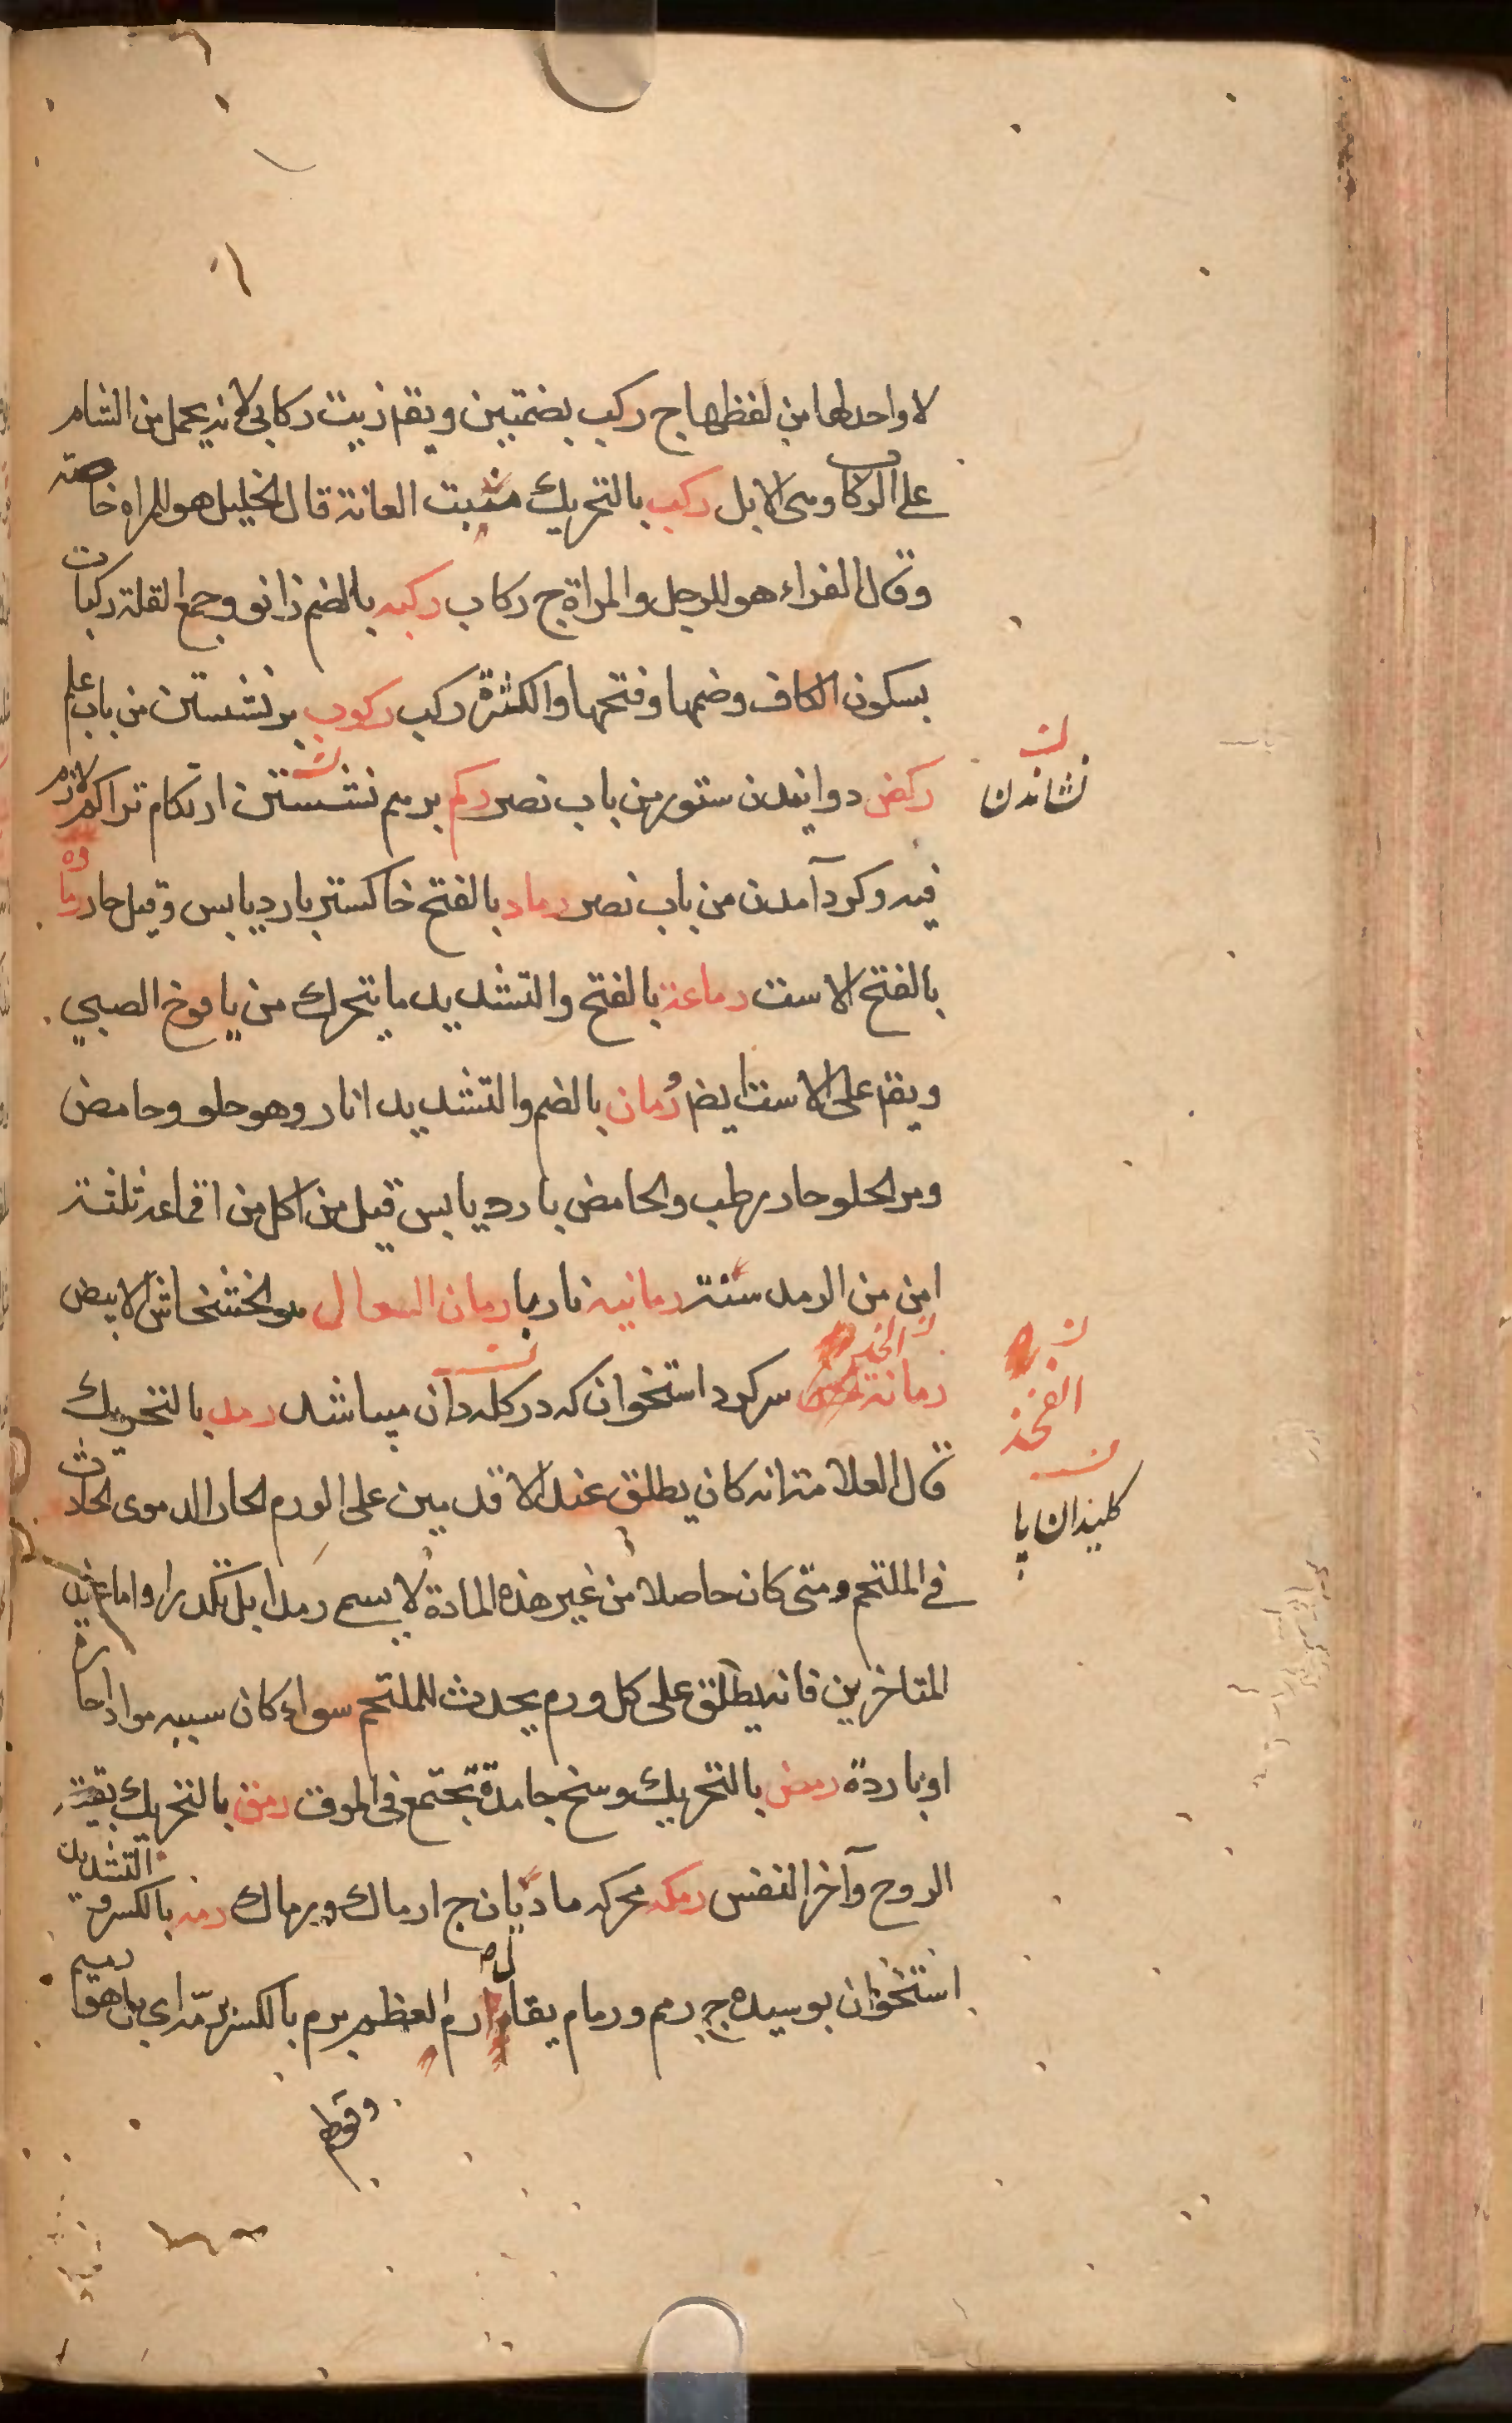 لا واحد لها من لفظها ج ركب بضمتين ويقم زيت ركابى لانه يحمل من الشام
على الركاب وهى الابل ركب بالتحريك منبت العانة قال الخليل هو للمراة خاصته
وقال الفراء هو للرجل والمراة ج ركاب ركبه بالضم زانو وجمع القلة ركبات
بسكون الكاف وضمها وفتحها والكثرة ركب ركوب بر نشستن من باب علم
ركض دوانيدن ستور من باب نصر ركم برهم نشستن ارتكام تراكم لازم
فيه وكرد آمدن من باب نصر رماد بالفتح خاكستر بارد يابس وقيل حار رماه
بالفتح الاست رماعة بالفتح والتشديد ما يتحرك من يافوخ الصبي
ويقم على الاست ايضر رمان بالضم والتشديد انار وهو حلو وحامض
ومر الحلو حار رطب والحامض بارد يابس قيل من اكل من اقماعه ثلثة
امن من الرمد سنته رمانيه ناربا رمان السعال هو الخشخاش الابيض
رمانة الفخذ سركرد استخوان كه در كله دان ميباشد رمد بالتحريك
قال العلامة انه كان يطلق عند الاقدمين على الورم الحار الدموى الحادث
في الملتحم ومتى كان حاصلا من غير هذه المادة لا يسم رمدا بل تكدرا واما عند
المتاخرين فانه يطلق على كل ورم يحدث للملتحم سواء كان سببه مواد حارة
او باردة رمض بالتحريك وسخ جامدة تجتمع فى الموق رمق بالتحريك بقية
الروح وآخر النفس رمكه محركه ماديان ج ارماك ورماك رمه بالكسر والتشديد
استخوان بوسيده ج رمم ورمام يقال رم العظم يرم بالكسر رمة اى بلى فهو رميم
وقوله
نشاندن
الفخذ
كليندان پا